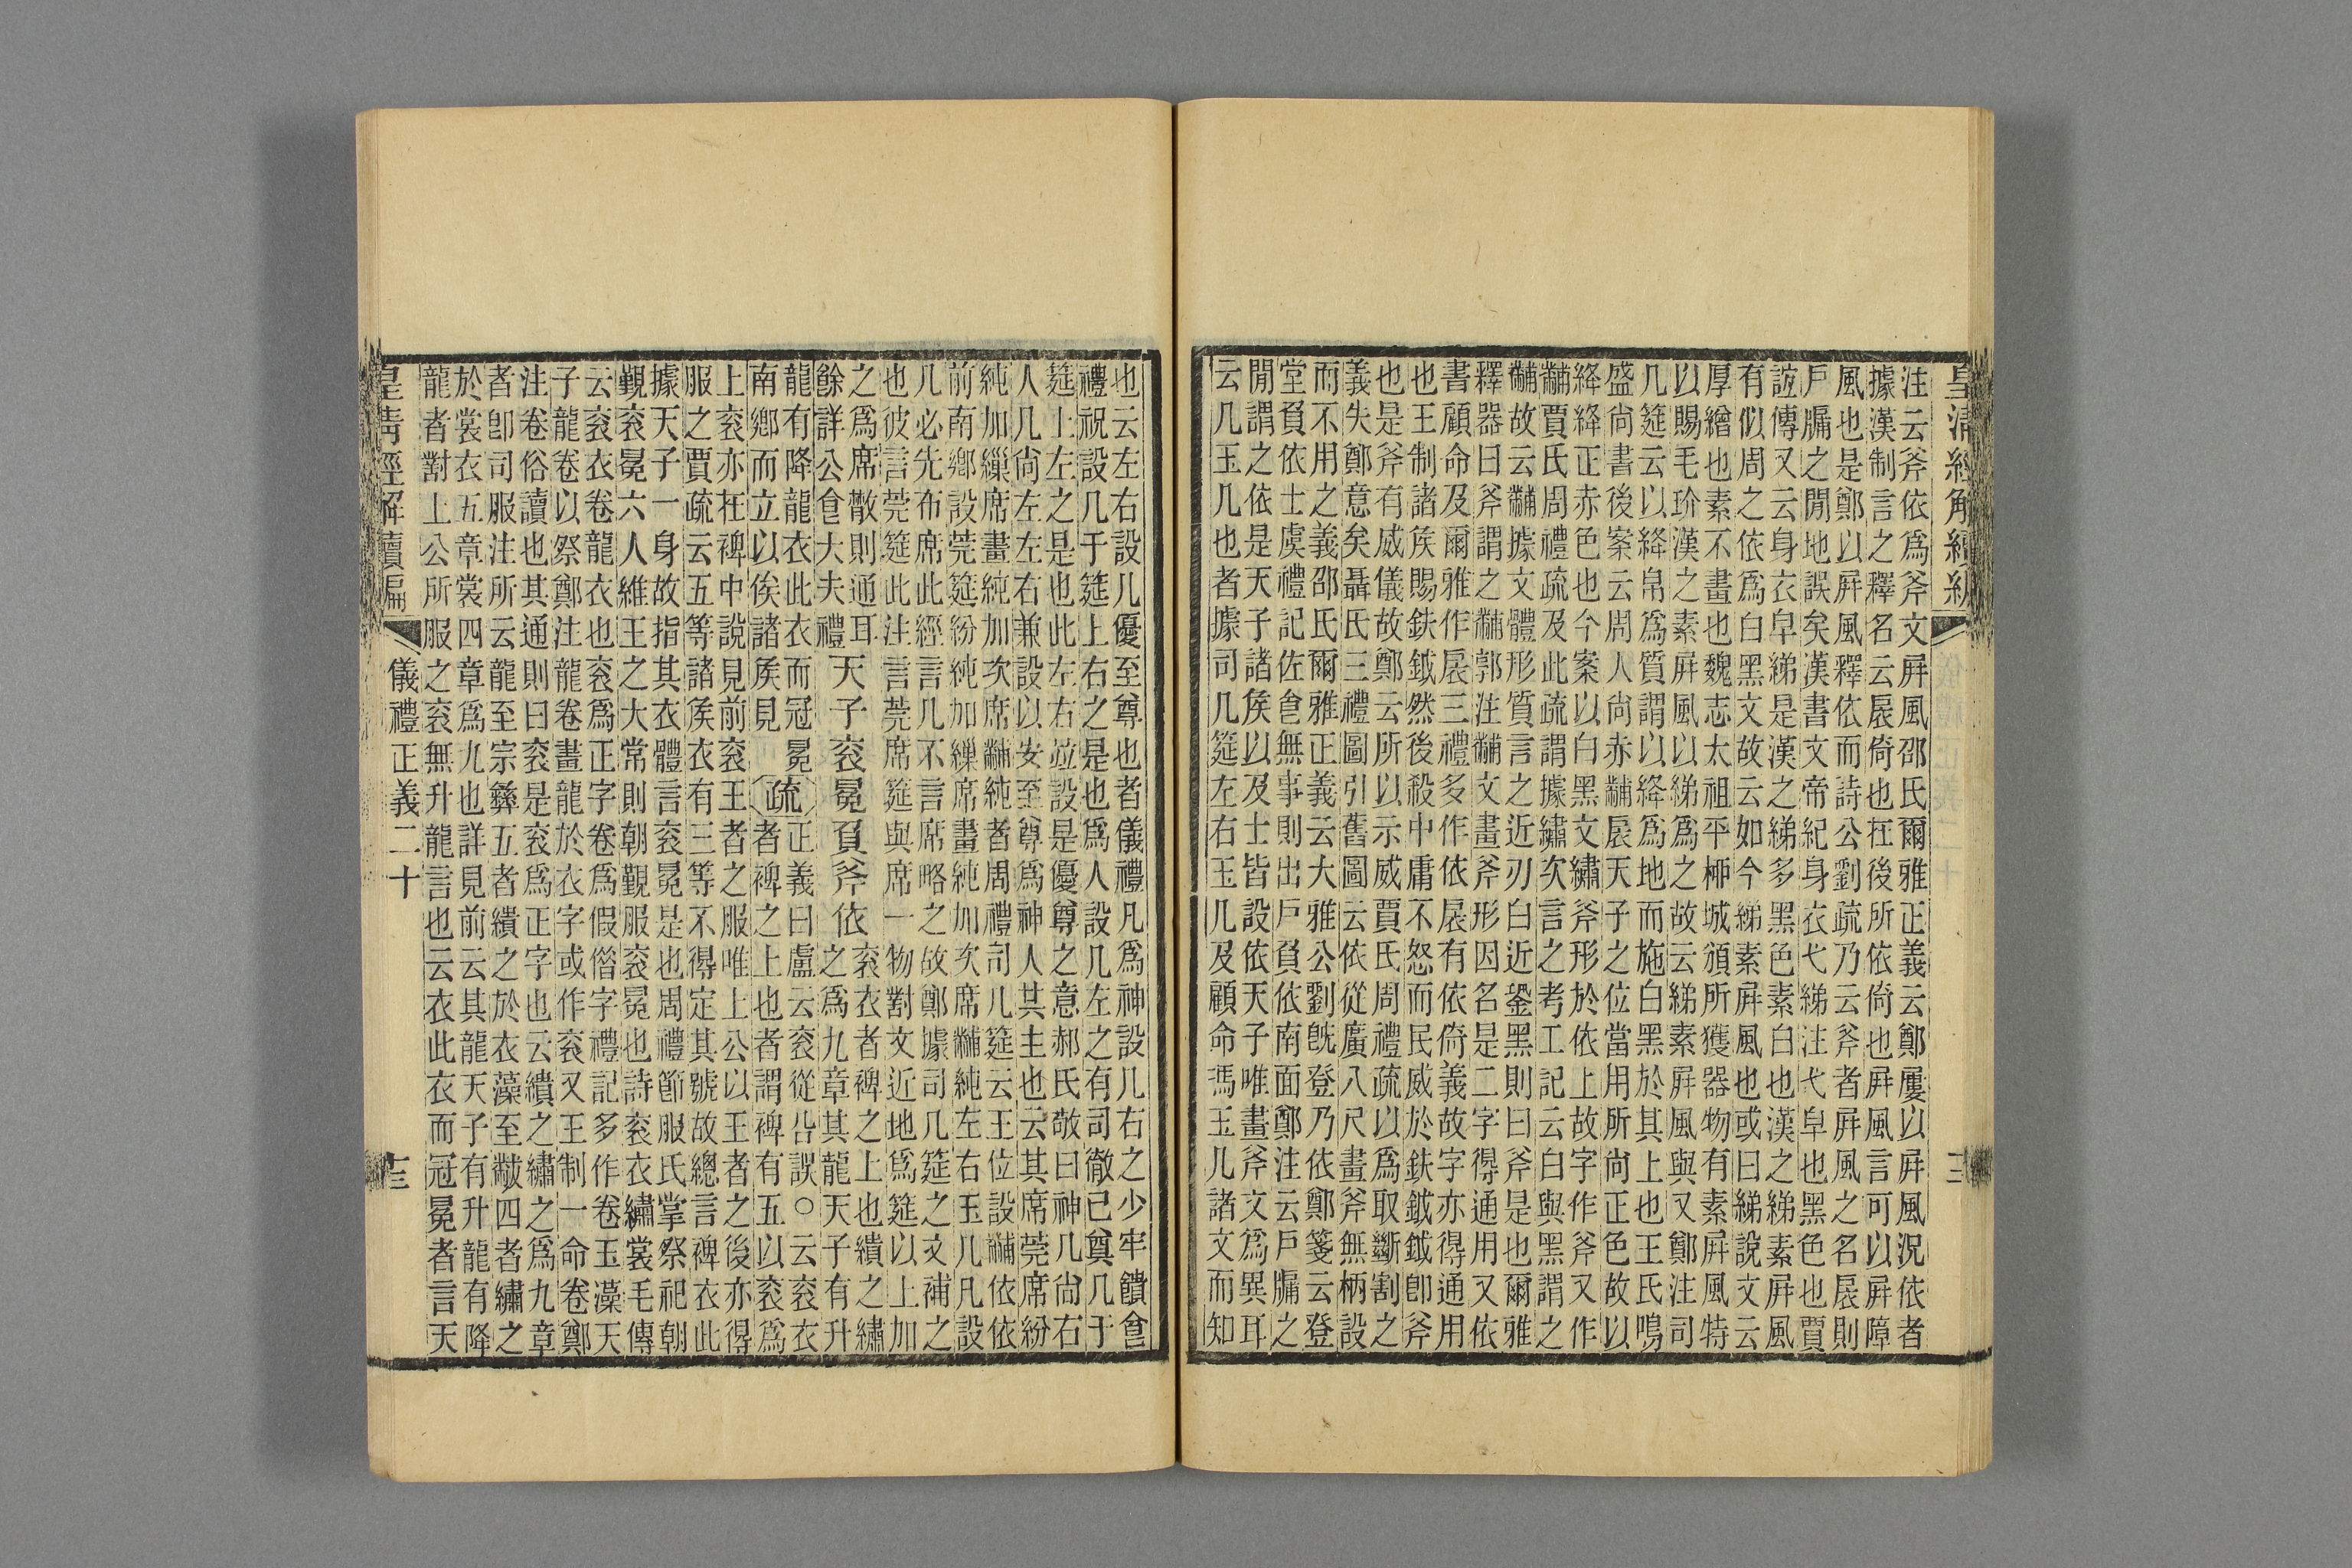 皇清經解續編
注云斧依爲斧文屏風邵氏爾雅正義云鄭屢以屏風況依者
據漢制言之釋名云扆倚也在後所依倚也屏風言可以屏障
風也是鄭以屏風釋依而詩公劉疏乃云斧者屏風之名扆則
戶牖之閒地誤矣漢書文帝紀身衣弋綈注弋皁也黑色也賈
誼傳又云身衣皁綈是漢之綈多黑色素白也漢之綈素屏風
有似周之依爲白黑文故云如今綈素屏風也或曰綈說文云
厚繒也素不畫也魏志太祖平柳城頒所獲器物有素屏風特
以賜毛玠漢之素屏風以綈爲之故云綈素屏風與又鄭注司
几筵云以絳帛爲質謂以絳爲地而施白黑於其上也王氏鳴
盛尚書後案云周人尚赤黼扆天子之位當用所尚正色故以
絳絳正赤色也今案以白黑文繡斧形於依上故字作斧又作
黼賈氏周禮疏及此疏謂據繡次言之考工記云白與黑謂之
黼故云黼據文體形質言之近刃白近銎黑則曰斧是也爾雅
釋器曰斧謂之黼郭注黼文畫斧形因名是二字得通用又依
書顧命及爾雅作扆三禮多作依扆有依倚義故字亦得通用
也王制諸矦賜鈇鉞然後殺中庸不怒而民威於鈇鉞鉞卽斧
也是斧有威儀故鄭云所以示威賈氏周禮疏以爲取斷割之
義失鄭意矣聶氏三禮圖引舊圖云依從廣八尺畫斧無柄設
而不用之義邵氏爾雅正義云大雅公劉旣登乃依鄭箋云登
堂負依士虞禮記佐食無事則出戶負依南面鄭注云戶牖之
閒謂之依是天子諸矦以及士皆設依天子唯畫斧文爲異耳
云几玉几也者據司几筵左右玉几及顧命馮玉几諸文而知
也云左右設几優至尊也者儀禮凡爲神設几右之少牢饋食
禮祝設几于筵上右之是也爲人設几左之有司徹已奠几于
筵上左之是也此左右竝設是優尊之意郝氏敬曰神几尙右
人几尙左左右兼設以安至尊爲神人其主也云其席莞席紛
純加繅席畫純加次席黼純者周禮司几筵云王位設黼依依
前南鄉設莞筵紛純加繅席畫純加次席黼純左右玉几凡設
几必先布席此經言几不言席略之故鄭據司几筵之文補之
也彼言莞筵此注言莞席筵與席一物對文近地爲筵以上加
之爲席散則通耳
天子袞冕負斧依
袞衣者裨之上也繢之繡
之爲九章其龍天子有升
龍有降龍衣此衣而冠冕
南鄉而立以俟諸矦見
疏
正義曰盧云袞從㕣誤○云袞衣
者裨之上也者謂裨有五以袞爲
餘詳公食大夫禮
上袞亦在裨中說見前袞王者之服唯上公以王者之後亦得
服之賈疏云五等諸矦衣有三等不得定其號故總言裨衣此
據天子一身故指其衣體言袞冕是也周禮節服氏掌祭祀朝
覲袞冕六人維王之大常則朝覲服袞冕也詩袞衣繡裳毛傳
云袞衣卷龍衣也袞爲正字卷爲假借字禮記多作卷玉藻天
子龍卷以祭鄭注龍卷畫龍於衣字或作袞又王制一命卷鄭
注卷俗讀也其通則曰袞是袞爲正字也云繢之繡之爲九章
者卽司服注所云龍至宗彝五者繢之於衣藻至黻四者繡之
於裳衣五章裳四章爲九也詳見前云其龍天子有升龍有降
龍者對上公所服之袞無升龍言也云衣此衣而冠冕者言天
皇清經解續編
儀禮正義二十
十三